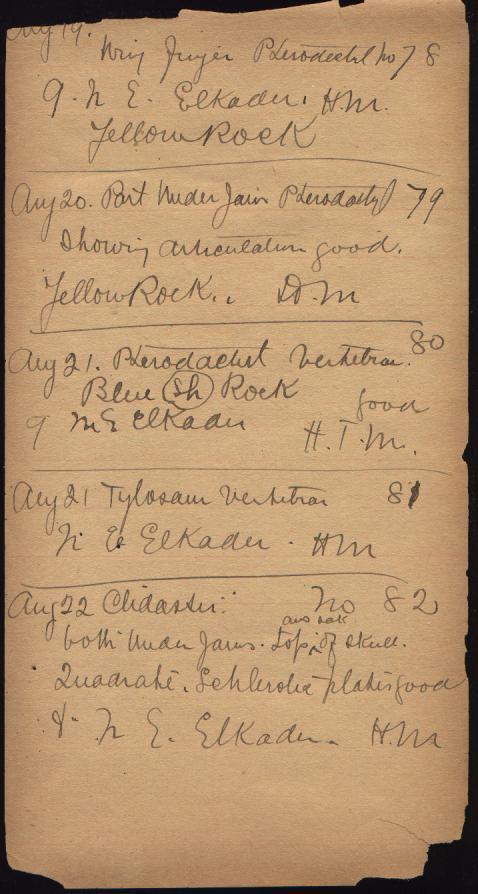 Aug 19.
Wing finger Pterodactyl No 78
9. N E. Elkader. H.M.
Yellow Rock
Aug 20. Part Under Jaw Pterodactyl 79
Showing articulation good.
Yellow Rock.. D.M
Aug 21. Pterodactyl Vertebrae. 80
Blue Sh Rock
good
9 N E Elkader
H.T.M.
Aug 21 Tylosaur Vertebrae 81
N E Elkader. HM
Aug 22 Clidastes: No 82
both Under Jaws. top of skull.
Quadrate. Schlerotic plates good
N E. Elkader. H.M